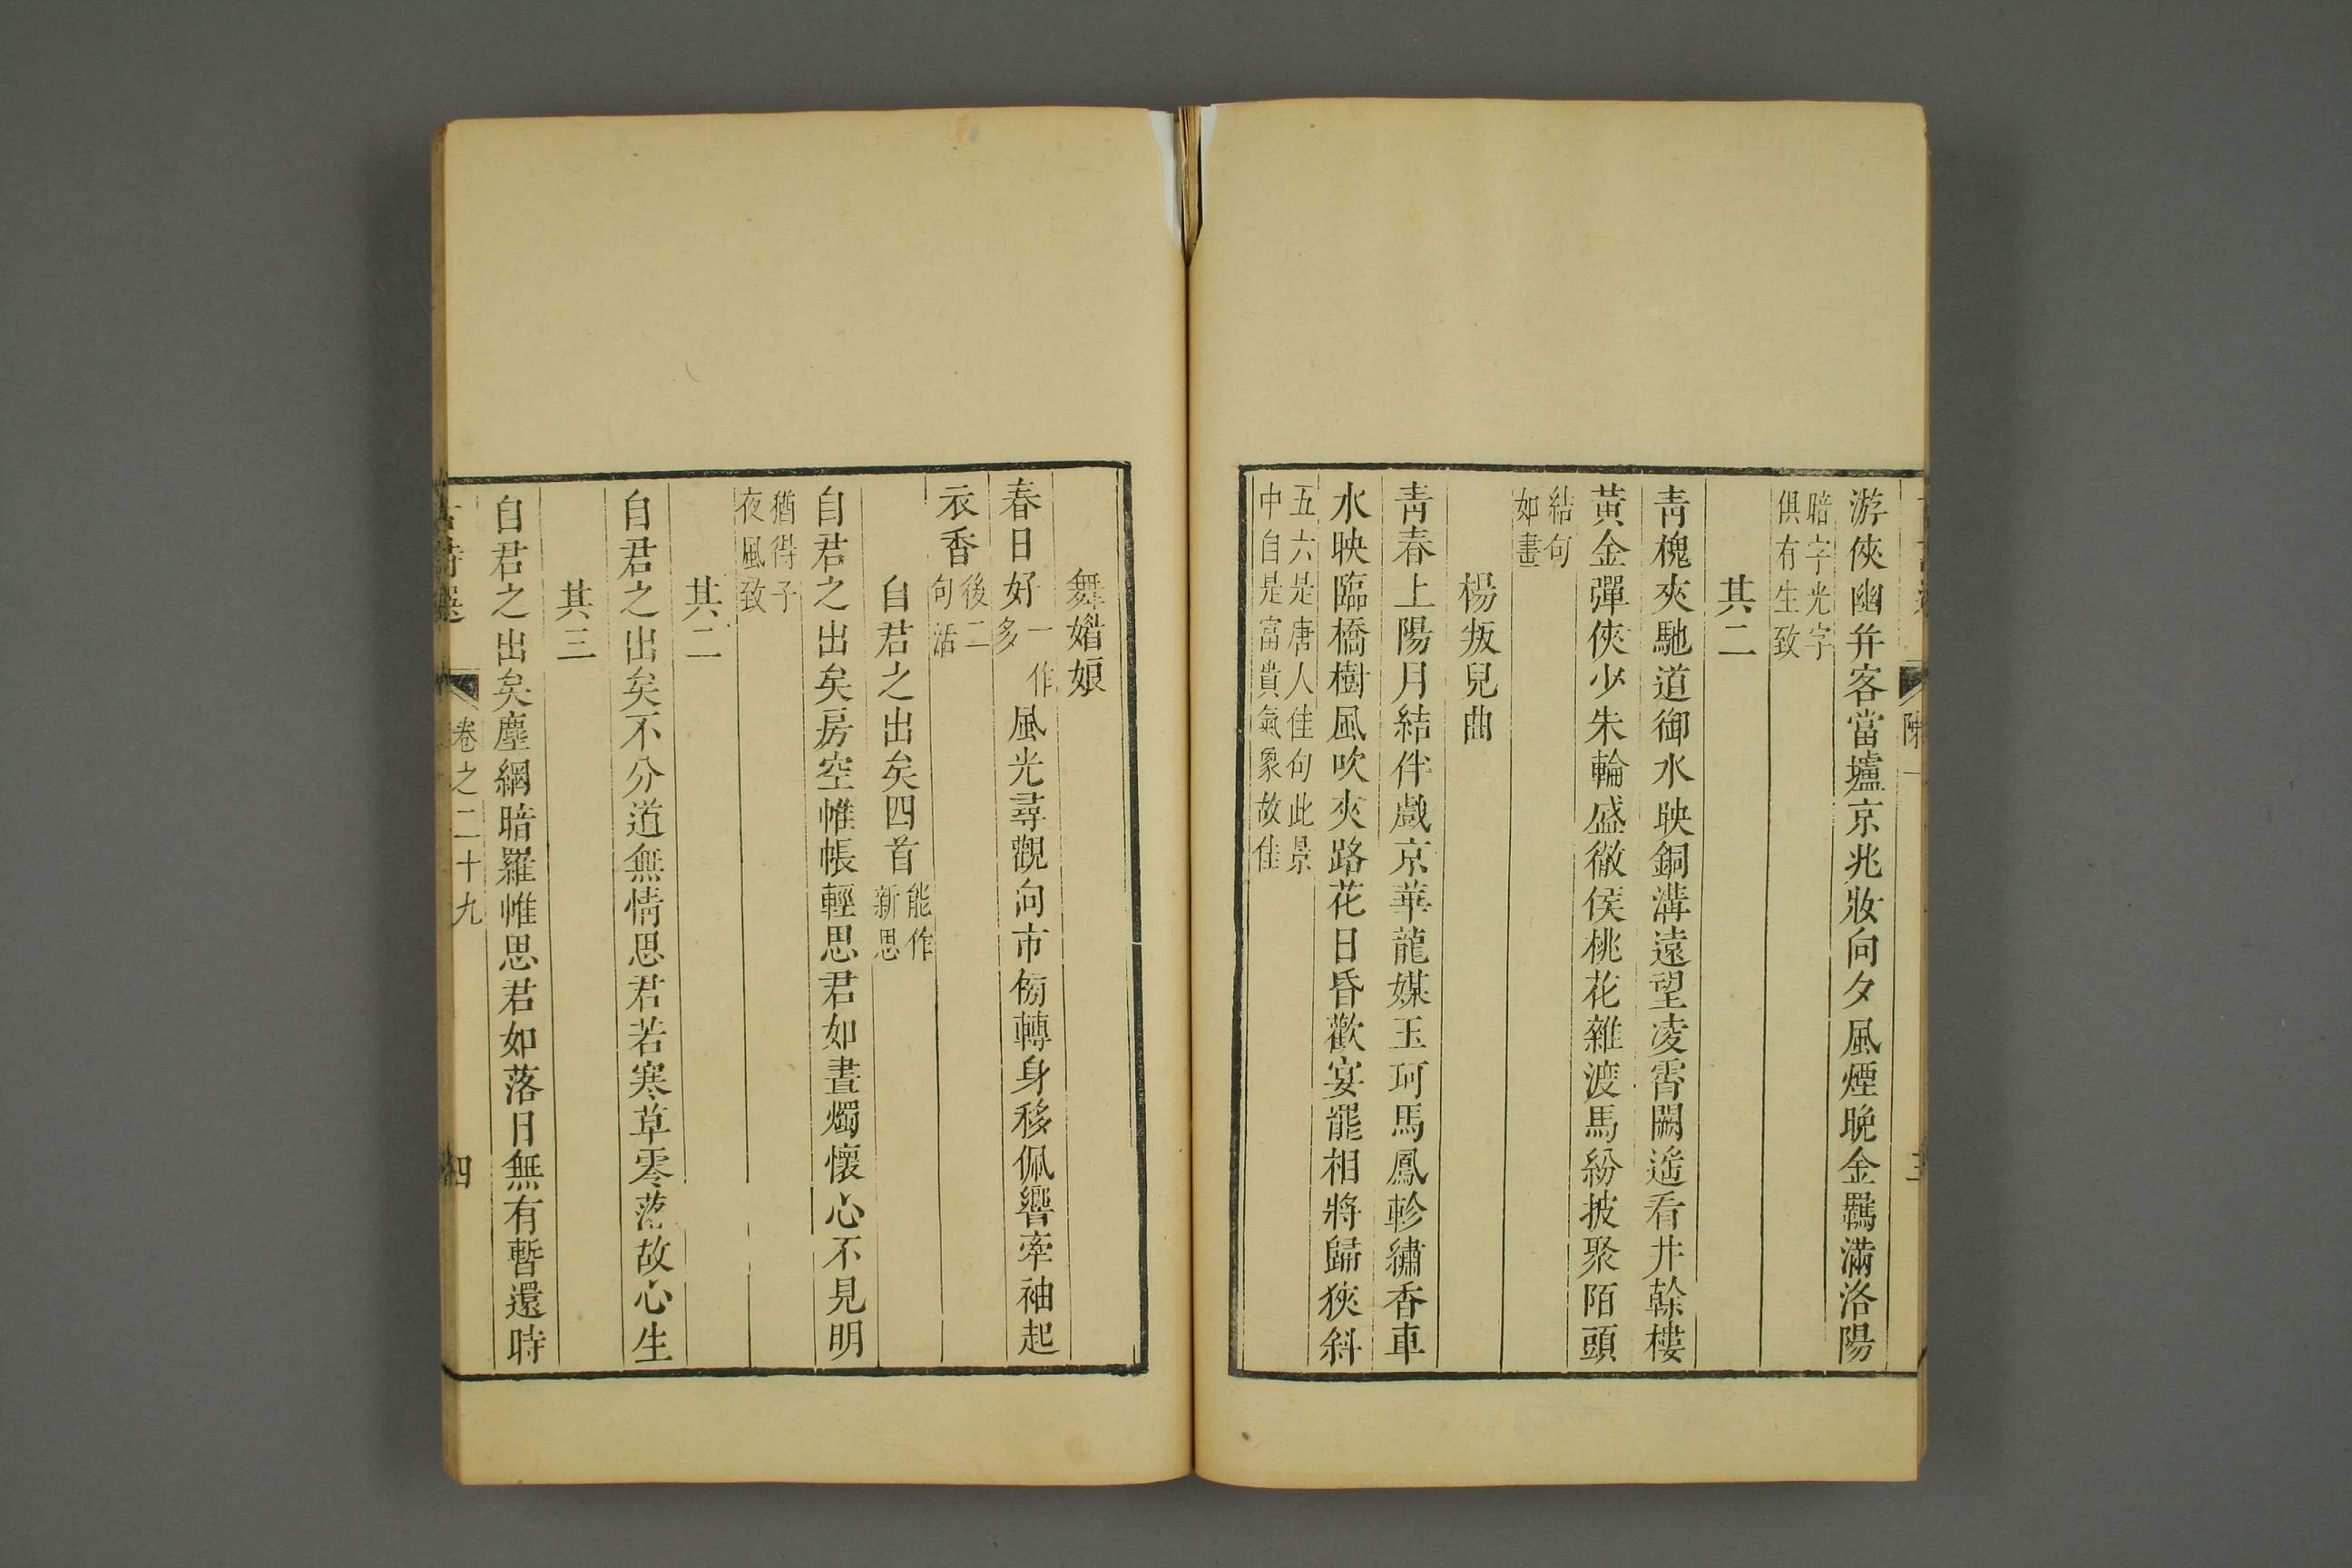 游俠幽并客當壚京兆妝向夕風煙晚金羈滿洛陽
暗字光字
俱有生致
其二
青槐夾馳道御水映銅溝遠望凌霄闕遙看井幹樓
黃金彈俠少朱輪盛徹侯桃花雜渡馬紛披聚陌頭
結句
如畫
楊叛兒曲
青春上陽月結伴戲京華龍媒玉珂馬鳳軫繡香車
水映臨橋樹風吹夾路花日昏歡宴罷相將歸狹斜
五六是唐人佳句此景
中自是富貴氣象故佳
舞媘娘
春日好一作多風光尋觀向市傍轉身移佩響牽袖起
衣香後二句活
自君之出矣四首能作新思
自君之出矣房空帷帳輕思君如晝燭懷心不見明
猶得子
夜風致
其二
自君之出矣不分道無情思君若寒草零落故心生
其三
自君之出矣塵網暗羅帷思君如落日無有暫還時
卷之二十九
四